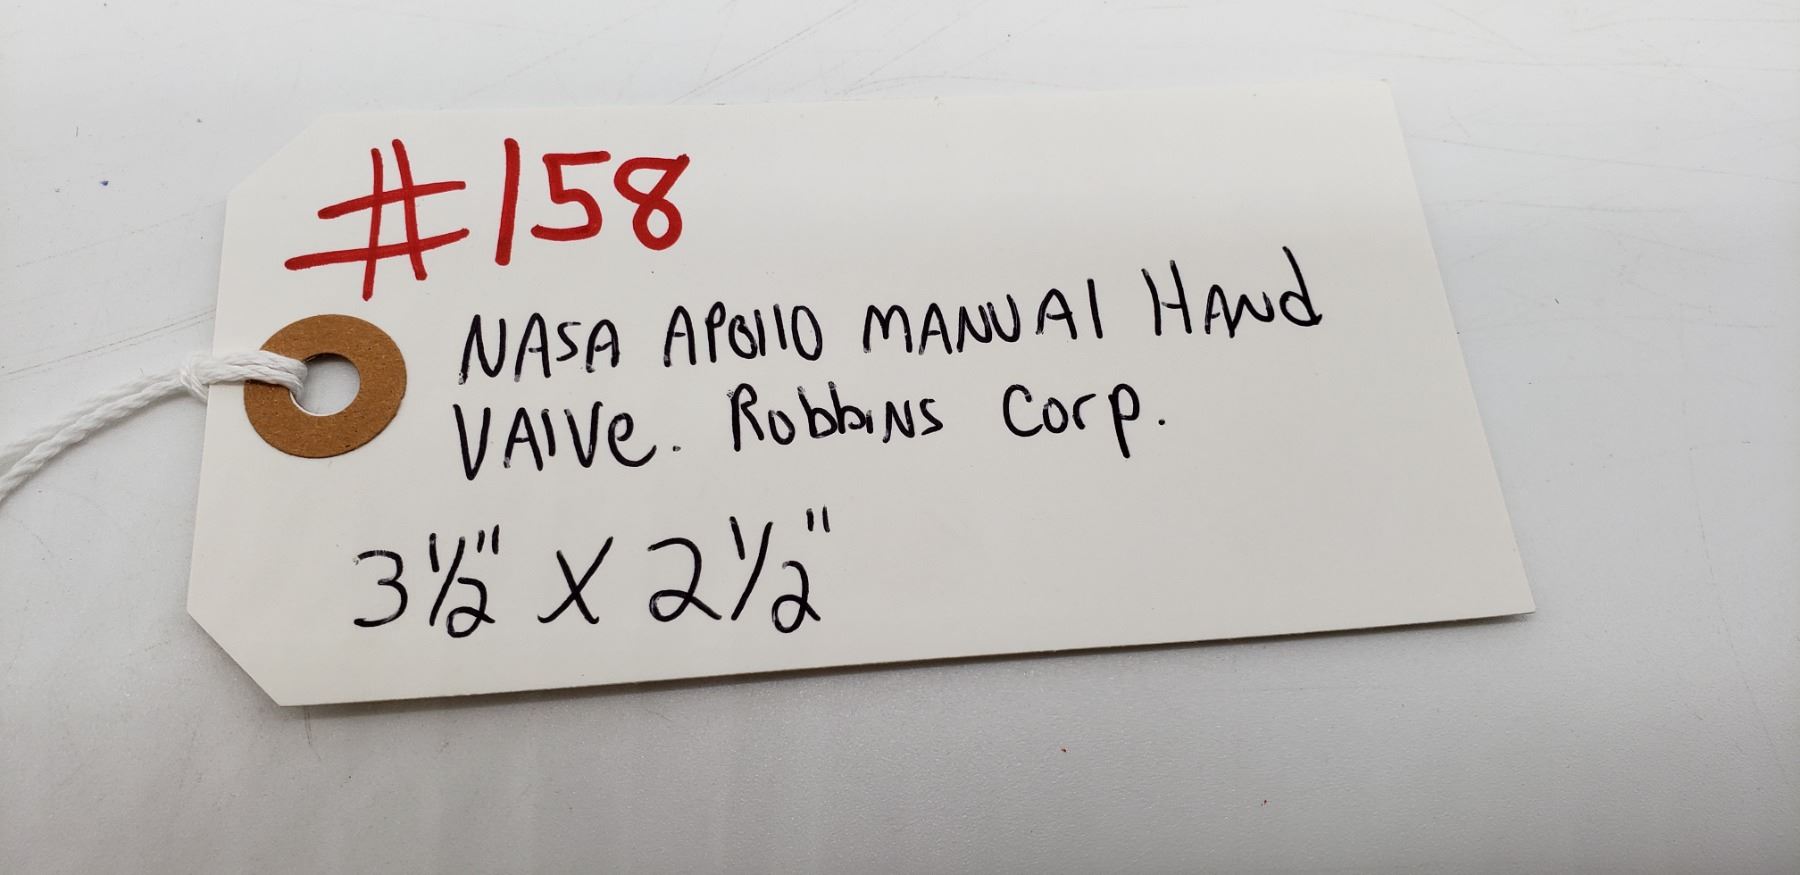 #158
NASA APOllO MANUAl HANd
VAlVe. RobbiNS Corp.
3 1/2" X 2 1/2"